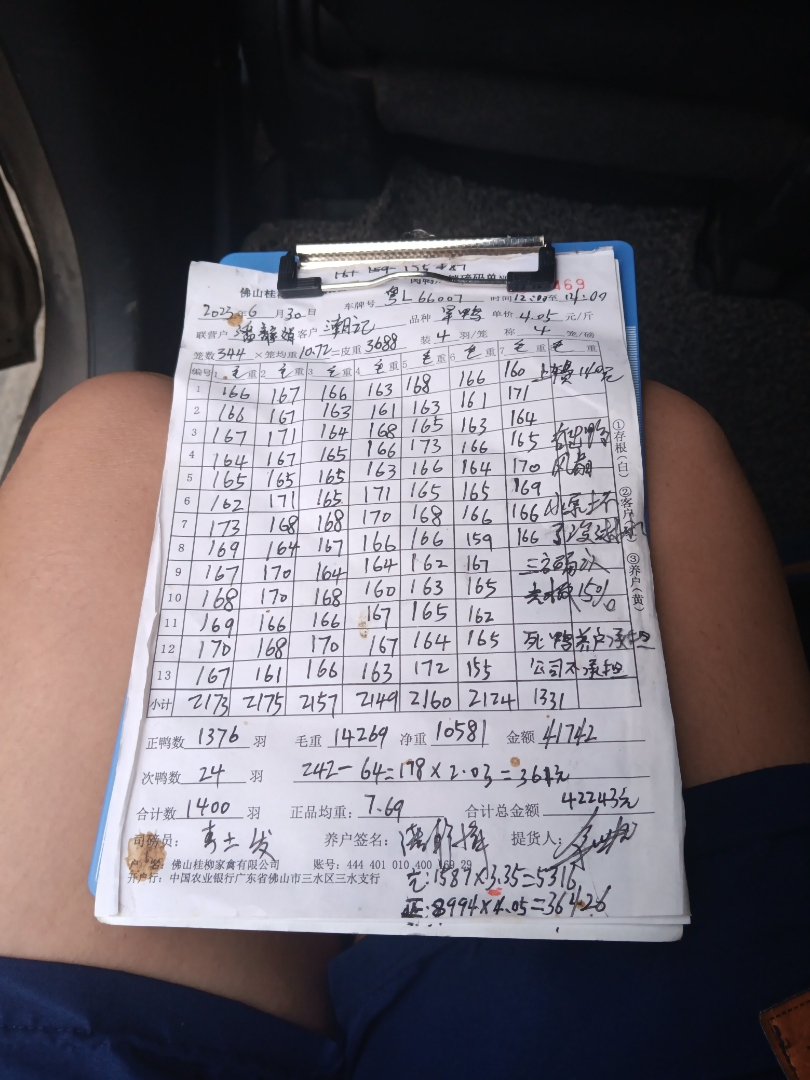 佛山桂柳
469
2023年6月30日 车牌号 粤L66007 时间12:00至14:00
联营户 客户 潮记 品种 单价 4.05 元/斤
笼数 344 ×笼均重 10.72 =皮重 3688 装 4 羽/笼 称 4 笼/磅
编号 1 毛重 2 毛重 3 毛重 4 毛重 5 毛重 6 毛重 7 毛重 毛重
1 166 167 166 163 168 166 160 上车费140元
2 166 167 163 161 163 161 171
3 167 171 164 168 165 163 164
4 164 167 165 166 173 166 165
5 165 165 165 163 166 164 170 风扇
6 162 171 165 171 165 165 169
7 173 168 168 170 168 166 166 水泵坏
8 169 164 167 166 166 159 166
9 167 170 164 164 162 167 三方确认
10 168 170 168 160 163 165 15%
11 169 166 166 167 165 162
12 170 168 170 167 164 165 死鸭养户承担
13 167 161 166 163 172 155 公司不承担
小计 2173 2175 2157 2149 2160 2124 1331
①存根(白) ②客户 ③养户(黄)
正鸭数 1376 羽 毛重 14269 净重 10581 金额 41742
次鸭数 24 羽 242-64=178×2.03=361元
合计数 1400 羽 正品均重: 7.69 合计总金额 42243元
司磅员: 养户签名: 提货人:
户 名: 佛山桂柳家禽有限公司 账号: 444 401 010 400 169 29
开户行: 中国农业银行广东省佛山市三水区三水支行
1587×3.35=5316
正:8994×4.05=36426